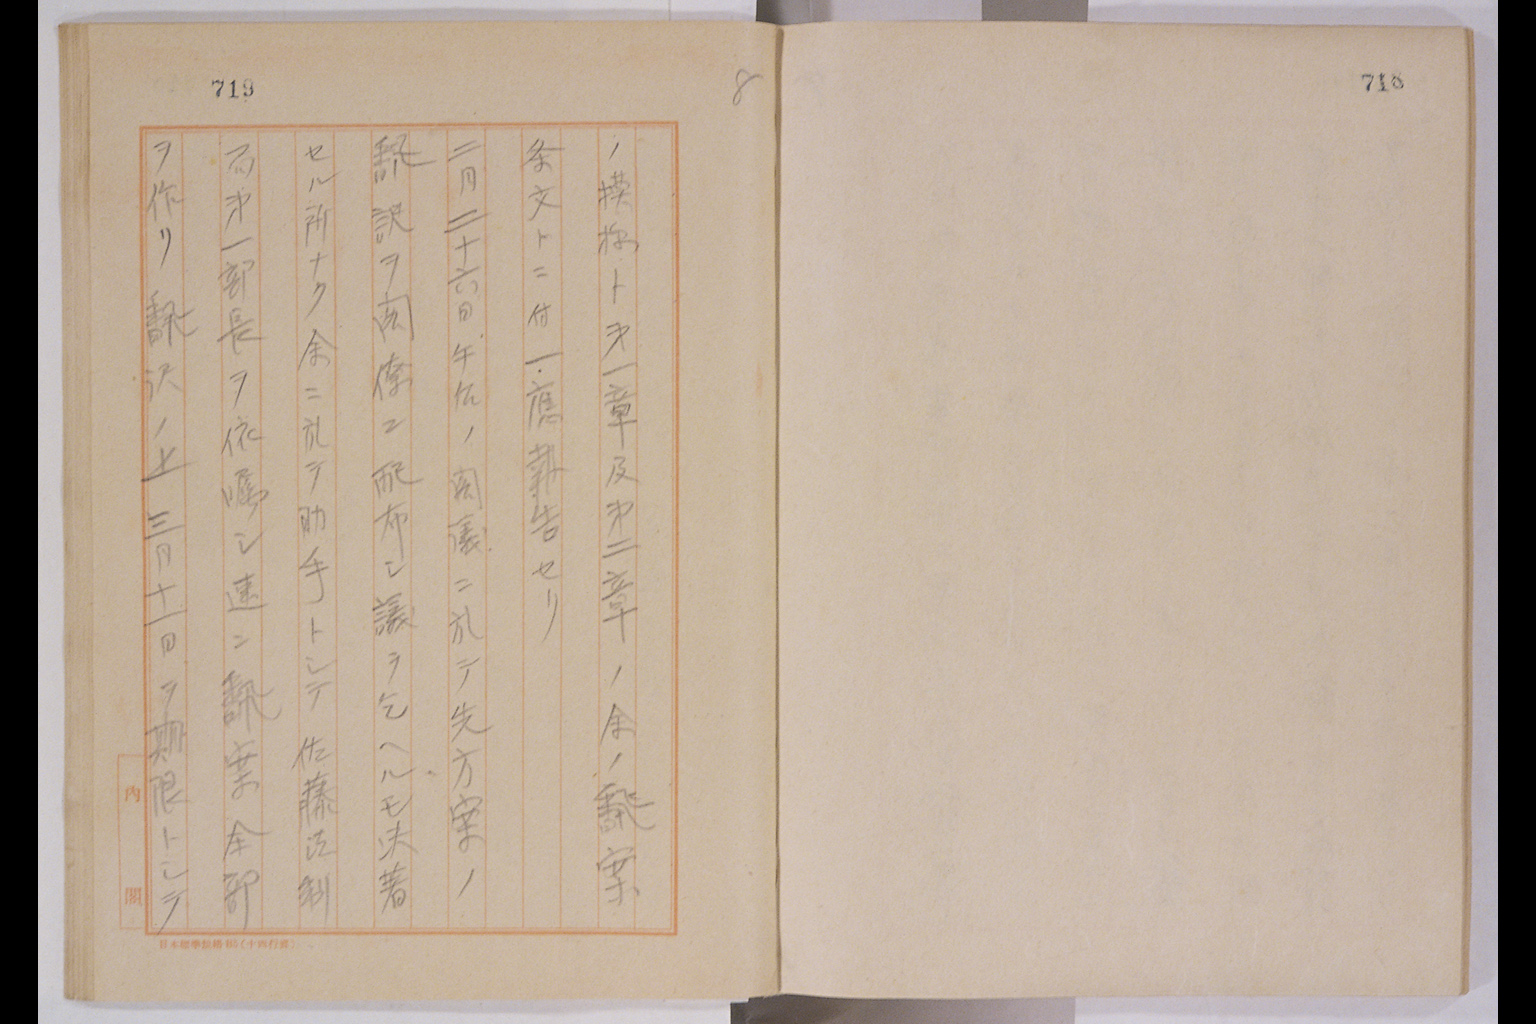 718
8
719
ノ模様ト第一章及第二章ノ余ノ飜案
条文トニ付一應報告セリ
二月二十六日午后ノ閣議ニ於テ先方案ノ
飜訳ヲ閣僚ニ配布シ議ヲ乞ヘルモ決着
セル所ナク余ニ於テ助手トシテ佐藤法制
局第一部長ヲ依嘱シ速ニ飜案全部
ヲ作リ飜訳ノ上三月十一日ヲ期限トシテ
内閣
日本標準規格